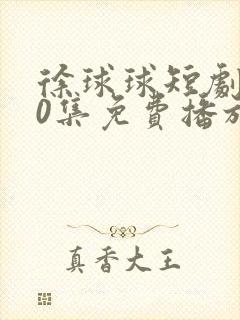 徐球球短劇
0集免費播放
真香大王